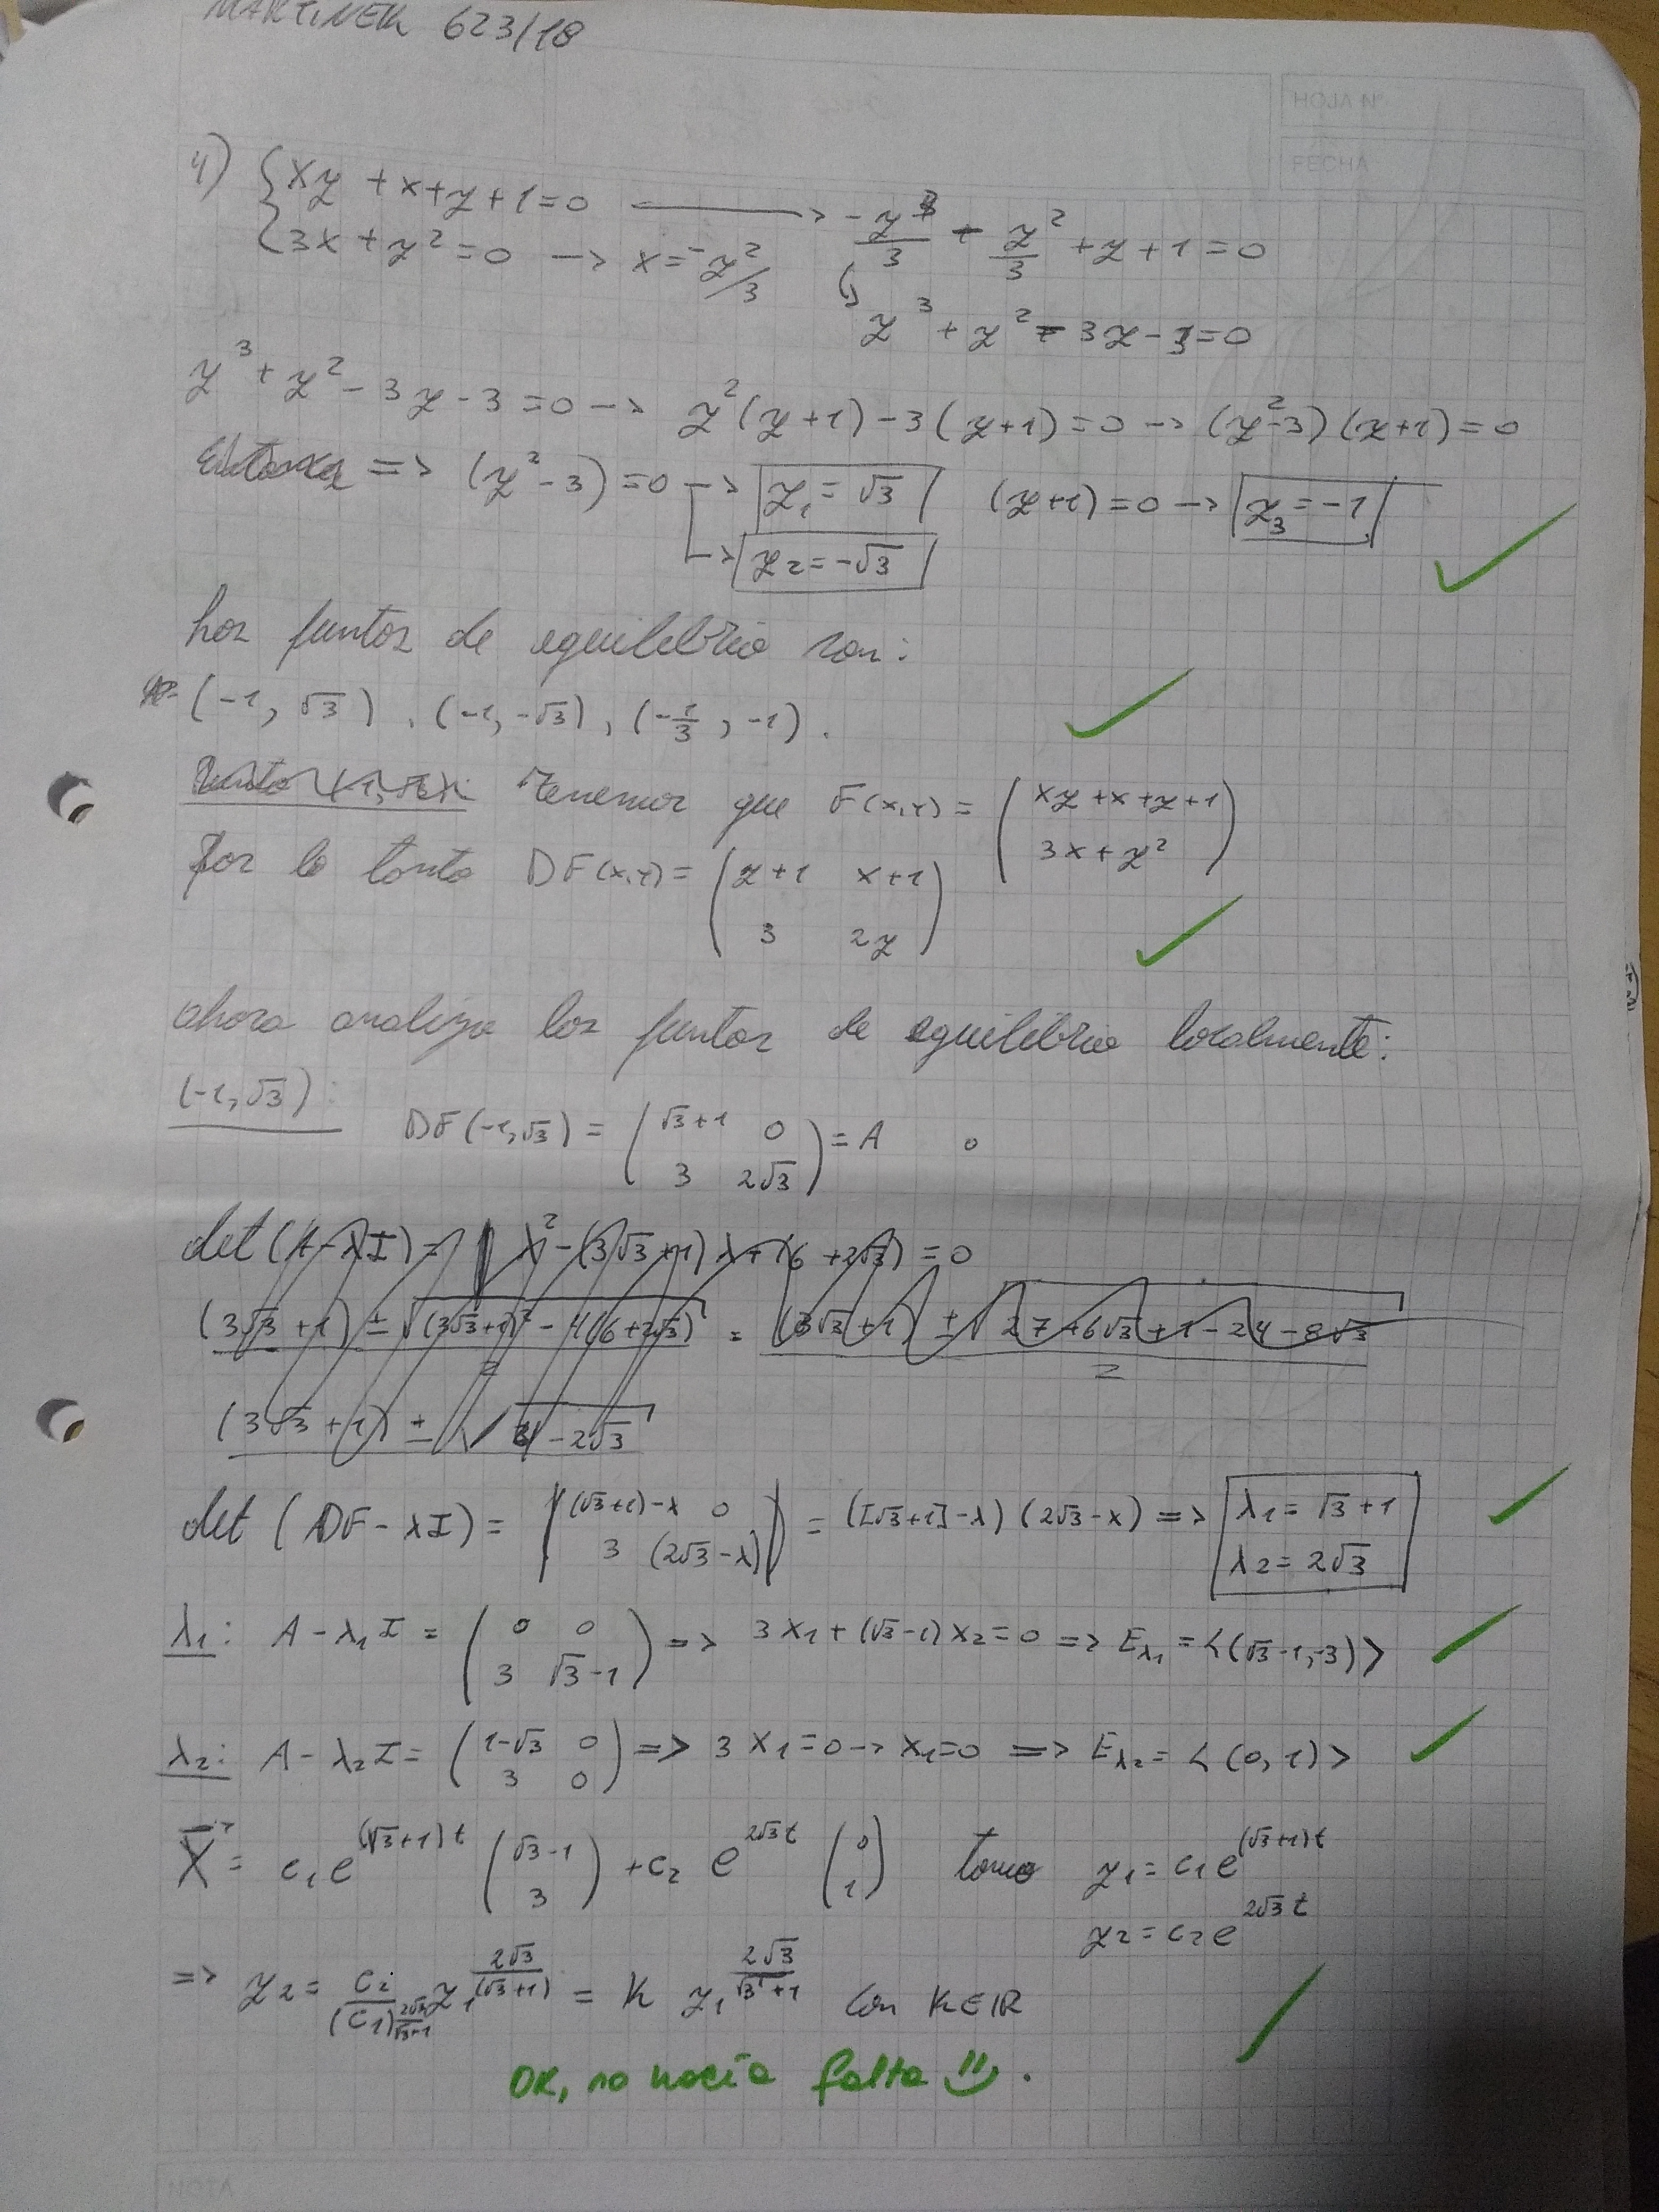 MARTINEK 623/18
HOJA N°
FECHA
4) { xy + x + y + 1 = 0 → -y³/3 - y²/3 + y + 1 = 0
3x + y² = 0 → x = -y²/3
y³ + y² - 3y - 3 = 0
y³ + y² - 3y - 3 = 0 → y²(y+1) - 3(y+1) = 0 → (y²-3)(y+1) = 0
Entonces => (y² - 3) = 0 → y₁ = √3 (y+1) = 0 → y₃ = -1
→ y₂ = -√3
Los puntos de equilibrio son:
(-1, √3), (-1, -√3), (-1/3, -1).
Tenemos que F(x,y) = (xy + x + y + 1
3x + y²)
Por lo tanto DF(x,y) = (y+1 x+1
3 2y)
ahora analizo los puntos de equilibrio localmente:
(-1, √3):
DF(-1, √3) = (√3+1 0
3 2√3) = A
det(A - λI) = λ² - (3√3+1)λ + (6 + 2√3) = 0
(3√3 + 1) ± √((3√3+1)² - 4(6+2√3)) / 2 = (3√3+1) ± √(27 + 6√3 + 1 - 24 - 8√3) / 2
(3√3 + 1) ± √(4 - 2√3)
det(DF - λI) = |(√3+1)-λ 0
3 (2√3-λ)| = ([√3+1]-λ)(2√3-λ) => λ₁ = √3+1
λ₂ = 2√3
λ₁: A - λ₁I = (0 0
3 √3-1) => 3x₁ + (√3-1)x₂ = 0 => Eλ₁ = <(√3-1, -3)>
λ₂: A - λ₂I = (1-√3 0
3 0) => 3x₁ = 0 → x₁ = 0 => Eλ₂ = <(0, 1)>
X = c₁e^(√3+1)t (√3-1
3) + c₂ e^2√3t (0
1) tomo y₁ = c₁e^(√3+1)t
y₂ = c₂e^2√3t
=> y₂ = c₂/(c₁)^(2√3/√3-1) y₁^(2√3/(√3+1)) = K y₁^(2√3/√3+1) con K∈ℝ
OK, no hacía falta
NOTA